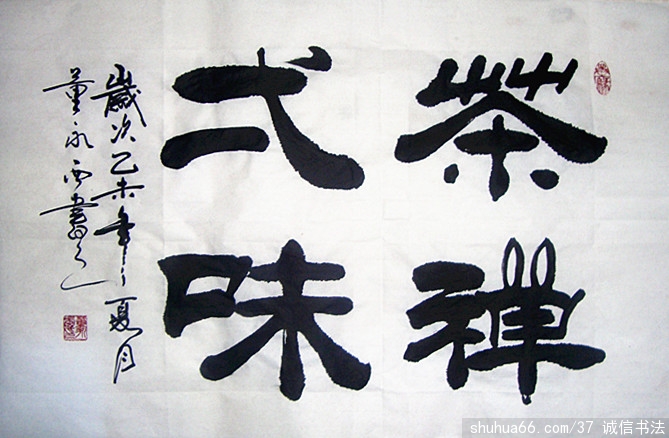 茶禅
弌味
歲次乙未年夏月
董永西書之
shuhua66.com/37 诚信书法